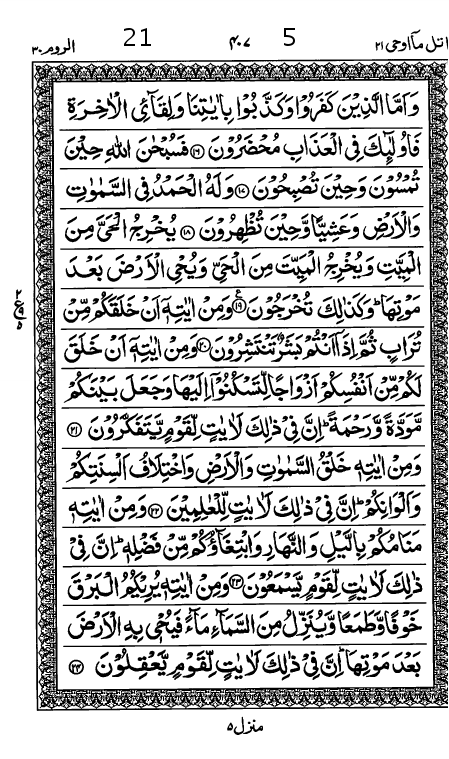 اتل مآاوحی ٢١ 5 ۴۰۷ 21 الروم ٣٠
وَاَمَّا الَّذِيْنَ كَفَرُوْا وَكَذَّبُوْا بِاٰيٰتِنَا وَلِقَآئِ الْاٰخِرَةِ
فَاُولٰٓئِكَ فِى الْعَذَابِ مُحْضَرُوْنَ ﴿١٦﴾ فَسُبْحٰنَ اللّٰهِ حِيْنَ
تُمْسُوْنَ وَحِيْنَ تُصْبِحُوْنَ ﴿١٧﴾ وَلَهُ الْحَمْدُ فِى السَّمٰوٰتِ
وَالْاَرْضِ وَعَشِيًّا وَّحِيْنَ تُظْهِرُوْنَ ﴿١٨﴾ يُخْرِجُ الْحَىَّ مِنَ
الْمَيِّتِ وَيُخْرِجُ الْمَيِّتَ مِنَ الْحَىِّ وَيُحْىِ الْاَرْضَ بَعْدَ
مَوْتِهَا ؕ وَكَذٰلِكَ تُخْرَجُوْنَ ﴿١٩﴾ ع وَمِنْ اٰيٰتِهٖۤ اَنْ خَلَقَكُمْ مِّنْ
تُرَابٍ ثُمَّ اِذَاۤ اَنْتُمْ بَشَرٌ تَنْتَشِرُوْنَ ﴿٢٠﴾ وَمِنْ اٰيٰتِهٖۤ اَنْ خَلَقَ
لَكُمْ مِّنْ اَنْفُسِكُمْ اَزْوَاجًا لِّتَسْكُنُوْۤا اِلَيْهَا وَجَعَلَ بَيْنَكُمْ
مَّوَدَّةً وَّرَحْمَةً ؕ اِنَّ فِىْ ذٰلِكَ لَاٰيٰتٍ لِّقَوْمٍ يَّتَفَكَّرُوْنَ ﴿٢١﴾
وَمِنْ اٰيٰتِهٖ خَلْقُ السَّمٰوٰتِ وَالْاَرْضِ وَاخْتِلَافُ اَلْسِنَتِكُمْ
وَاَلْوَانِكُمْ ؕ اِنَّ فِىْ ذٰلِكَ لَاٰيٰتٍ لِّلْعٰلِمِيْنَ ﴿٢٢﴾ وَمِنْ اٰيٰتِهٖ
مَنَامُكُمْ بِالَّيْلِ وَالنَّهَارِ وَابْتِغَآؤُكُمْ مِّنْ فَضْلِهٖ ؕ اِنَّ فِىْ
ذٰلِكَ لَاٰيٰتٍ لِّقَوْمٍ يَّسْمَعُوْنَ ﴿٢٣﴾ وَمِنْ اٰيٰتِهٖ يُرِيْكُمُ الْبَرْقَ
خَوْفًا وَّطَمَعًا وَّيُنَزِّلُ مِنَ السَّمَآءِ مَآءً فَيُحْىٖ بِهِ الْاَرْضَ
بَعْدَ مَوْتِهَا ؕ اِنَّ فِىْ ذٰلِكَ لَاٰيٰتٍ لِّقَوْمٍ يَّعْقِلُوْنَ ﴿٢٤﴾
منزل ۵